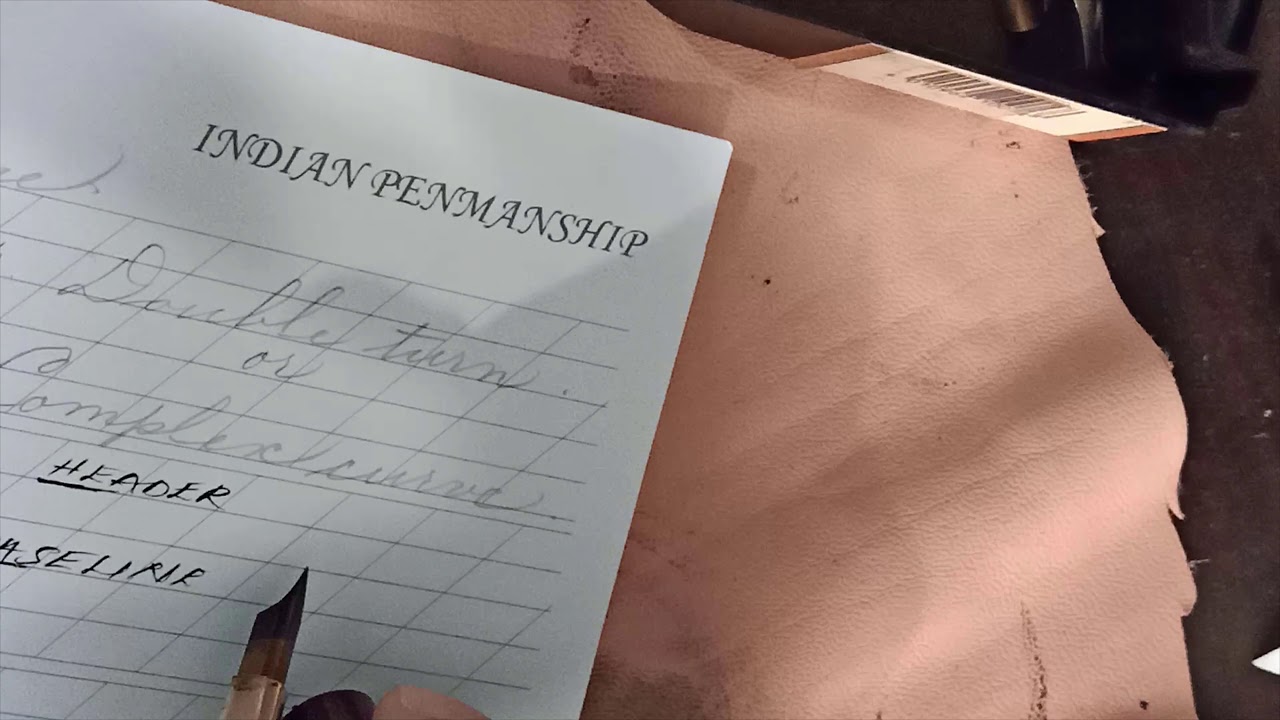 INDIAN PENMANSHIP
Double turn.
or
Complex curve.
HEADER